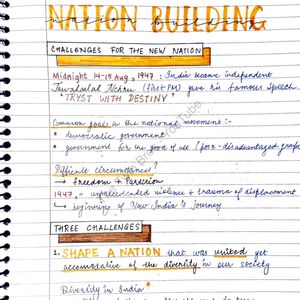 NATION BUILDING
nation building
CHALLENGES FOR THE NEW NATION
Midnight 14-15 Aug, 1947 : India became independent
Jawaharlal Nehru (first PM) gave his famous speech
"TRYST WITH DESTINY"
Common goals in the national movement :-
• democratic government
• government for the good of all (poor-disadvantaged
Difficult circumstances?
→ freedom + Partition
1947 - unprecedented violence + trauma of displacement
→ beginning of New India's journey
THREE CHALLENGES
1. SHAPE A NATION that was united yet
accomodative of the diversity in our society
Diversity in India